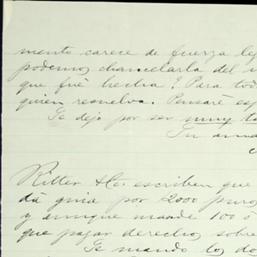 mento carece de fuerza leg
podemos chancelarla del m
que fué hecha? Para tod
quien resuelva. Pensaré esp
Te dejo por ser muy ta
Tu ama
Ritter & Co. escriben que
dá guia por 2000 puros
y aunque mande 100 ó
que pagar derechos sobre
Te mando los do